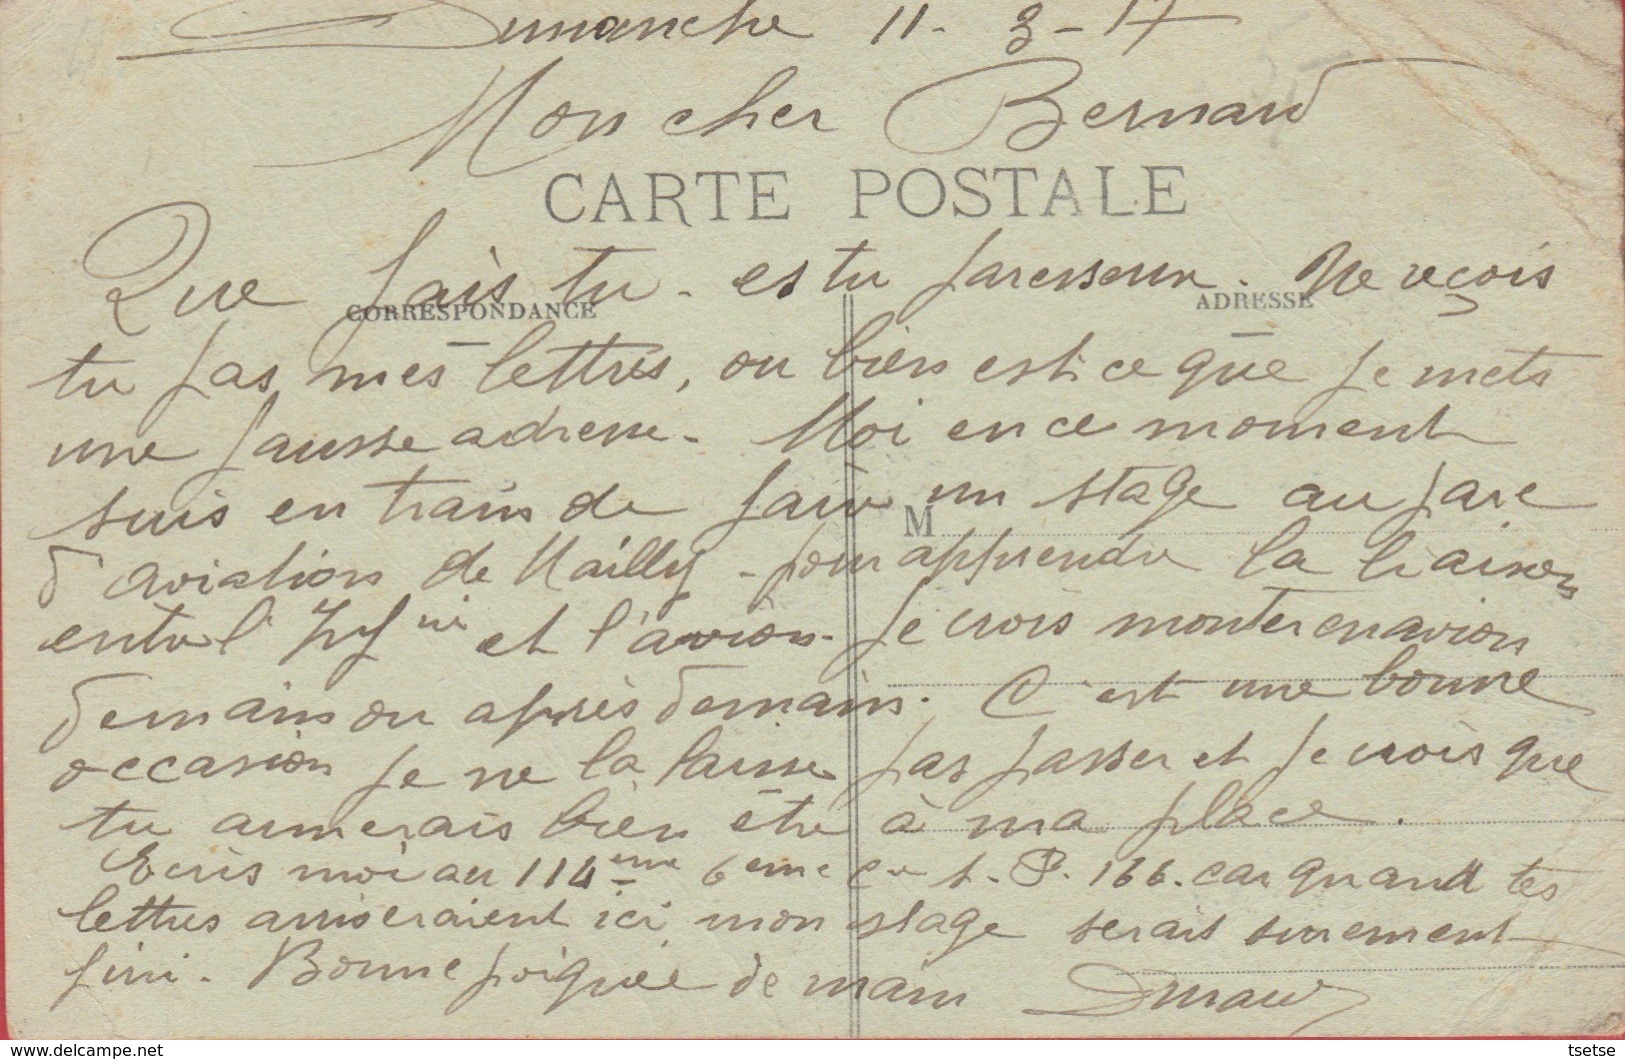 Dimanche 11-3-17
Mon cher Bernard
CARTE POSTALE
Que fais tu - es tu paresseux. Ne reçois
CORRESPONDANCE
ADRESSE
tu pas mes lettres, ou bien est ce que je mets
une fausse adresse. Moi en ce moment
suis en train de faire un stage au parc
M
d'aviation de Mailly - pour apprendre la liaison
entre l'Inf rie et l'avion. Je crois monter en avion
demain ou après demain. C'est une bonne
occasion je ne la laisse pas passer et je crois que
tu aimerais bien être à ma place.
Ecris moi au 114ème 6ème Cie S.P. 166. car quand tes
lettres arriveraient ici mon stage serait surement
fini. Bonne poignée de main Durand
tsetse
www.delcampe.net